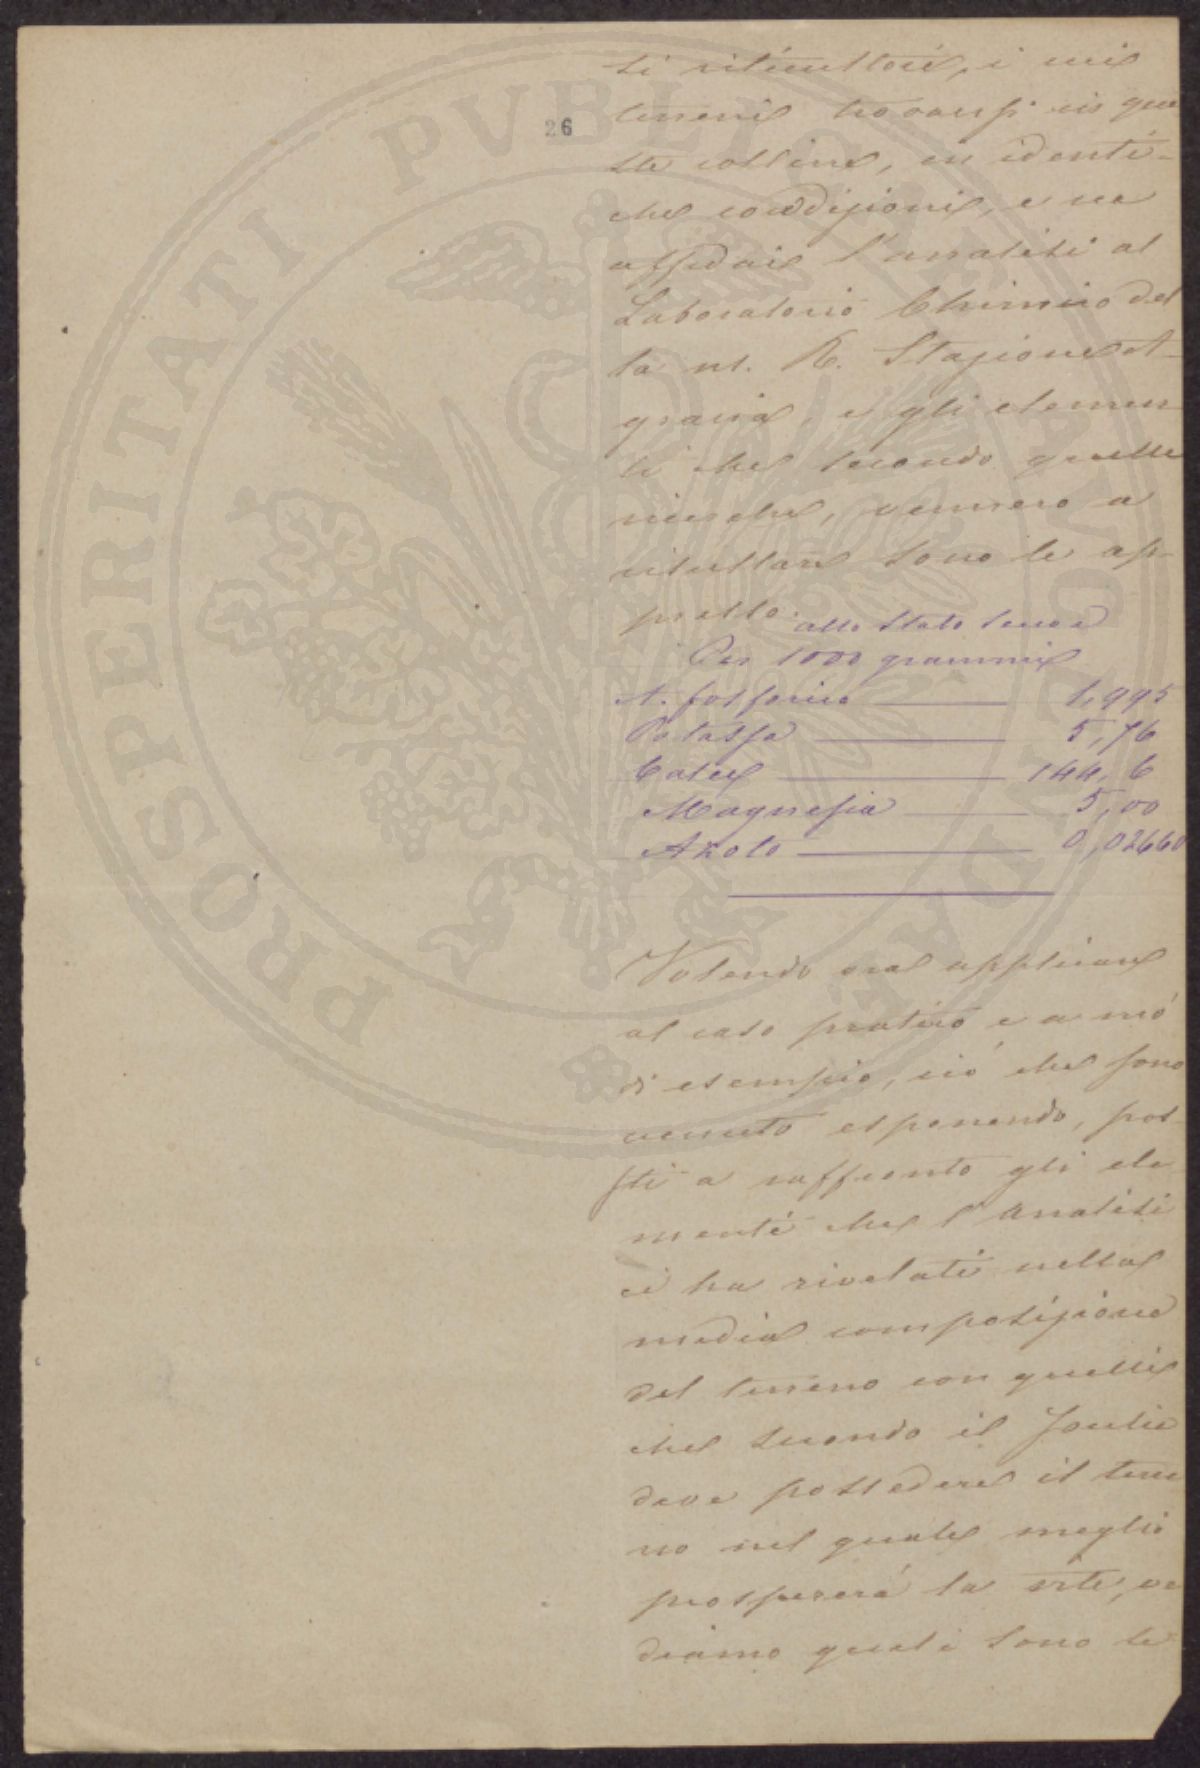 26
ti viticultori, i miei
terreni trovansi in que
ste colline, in identi-
che condizioni, e ne
affidai l'analisi al
Laboratorio Chimico del
la R. Stazione A-
graria, e gli elemen
ti che secondo quelle
ricerche, vennero a
risultare sono le ap-
presso:
allo stato secco
Per 1000 grammi
A. fosforico 1,995
Potassa 5,76
Calce 144,6
Magnesia 5,00
Azoto 0,02660
Volendo ora applicare
al caso pratico e a mo'
di esempio, ciò che sono
venuto esponendo, pos-
sti a raffronto gli ele
menti che l'analisi
ci ha rivelati nella
media composizione
del terreno con quelli
che secondo il Joulie
deve possedere il terre
no nel quale meglio
prospererá la vite, ve
diamo quali sono le
PROSPERITATI PVBLICAE AVGENDAE